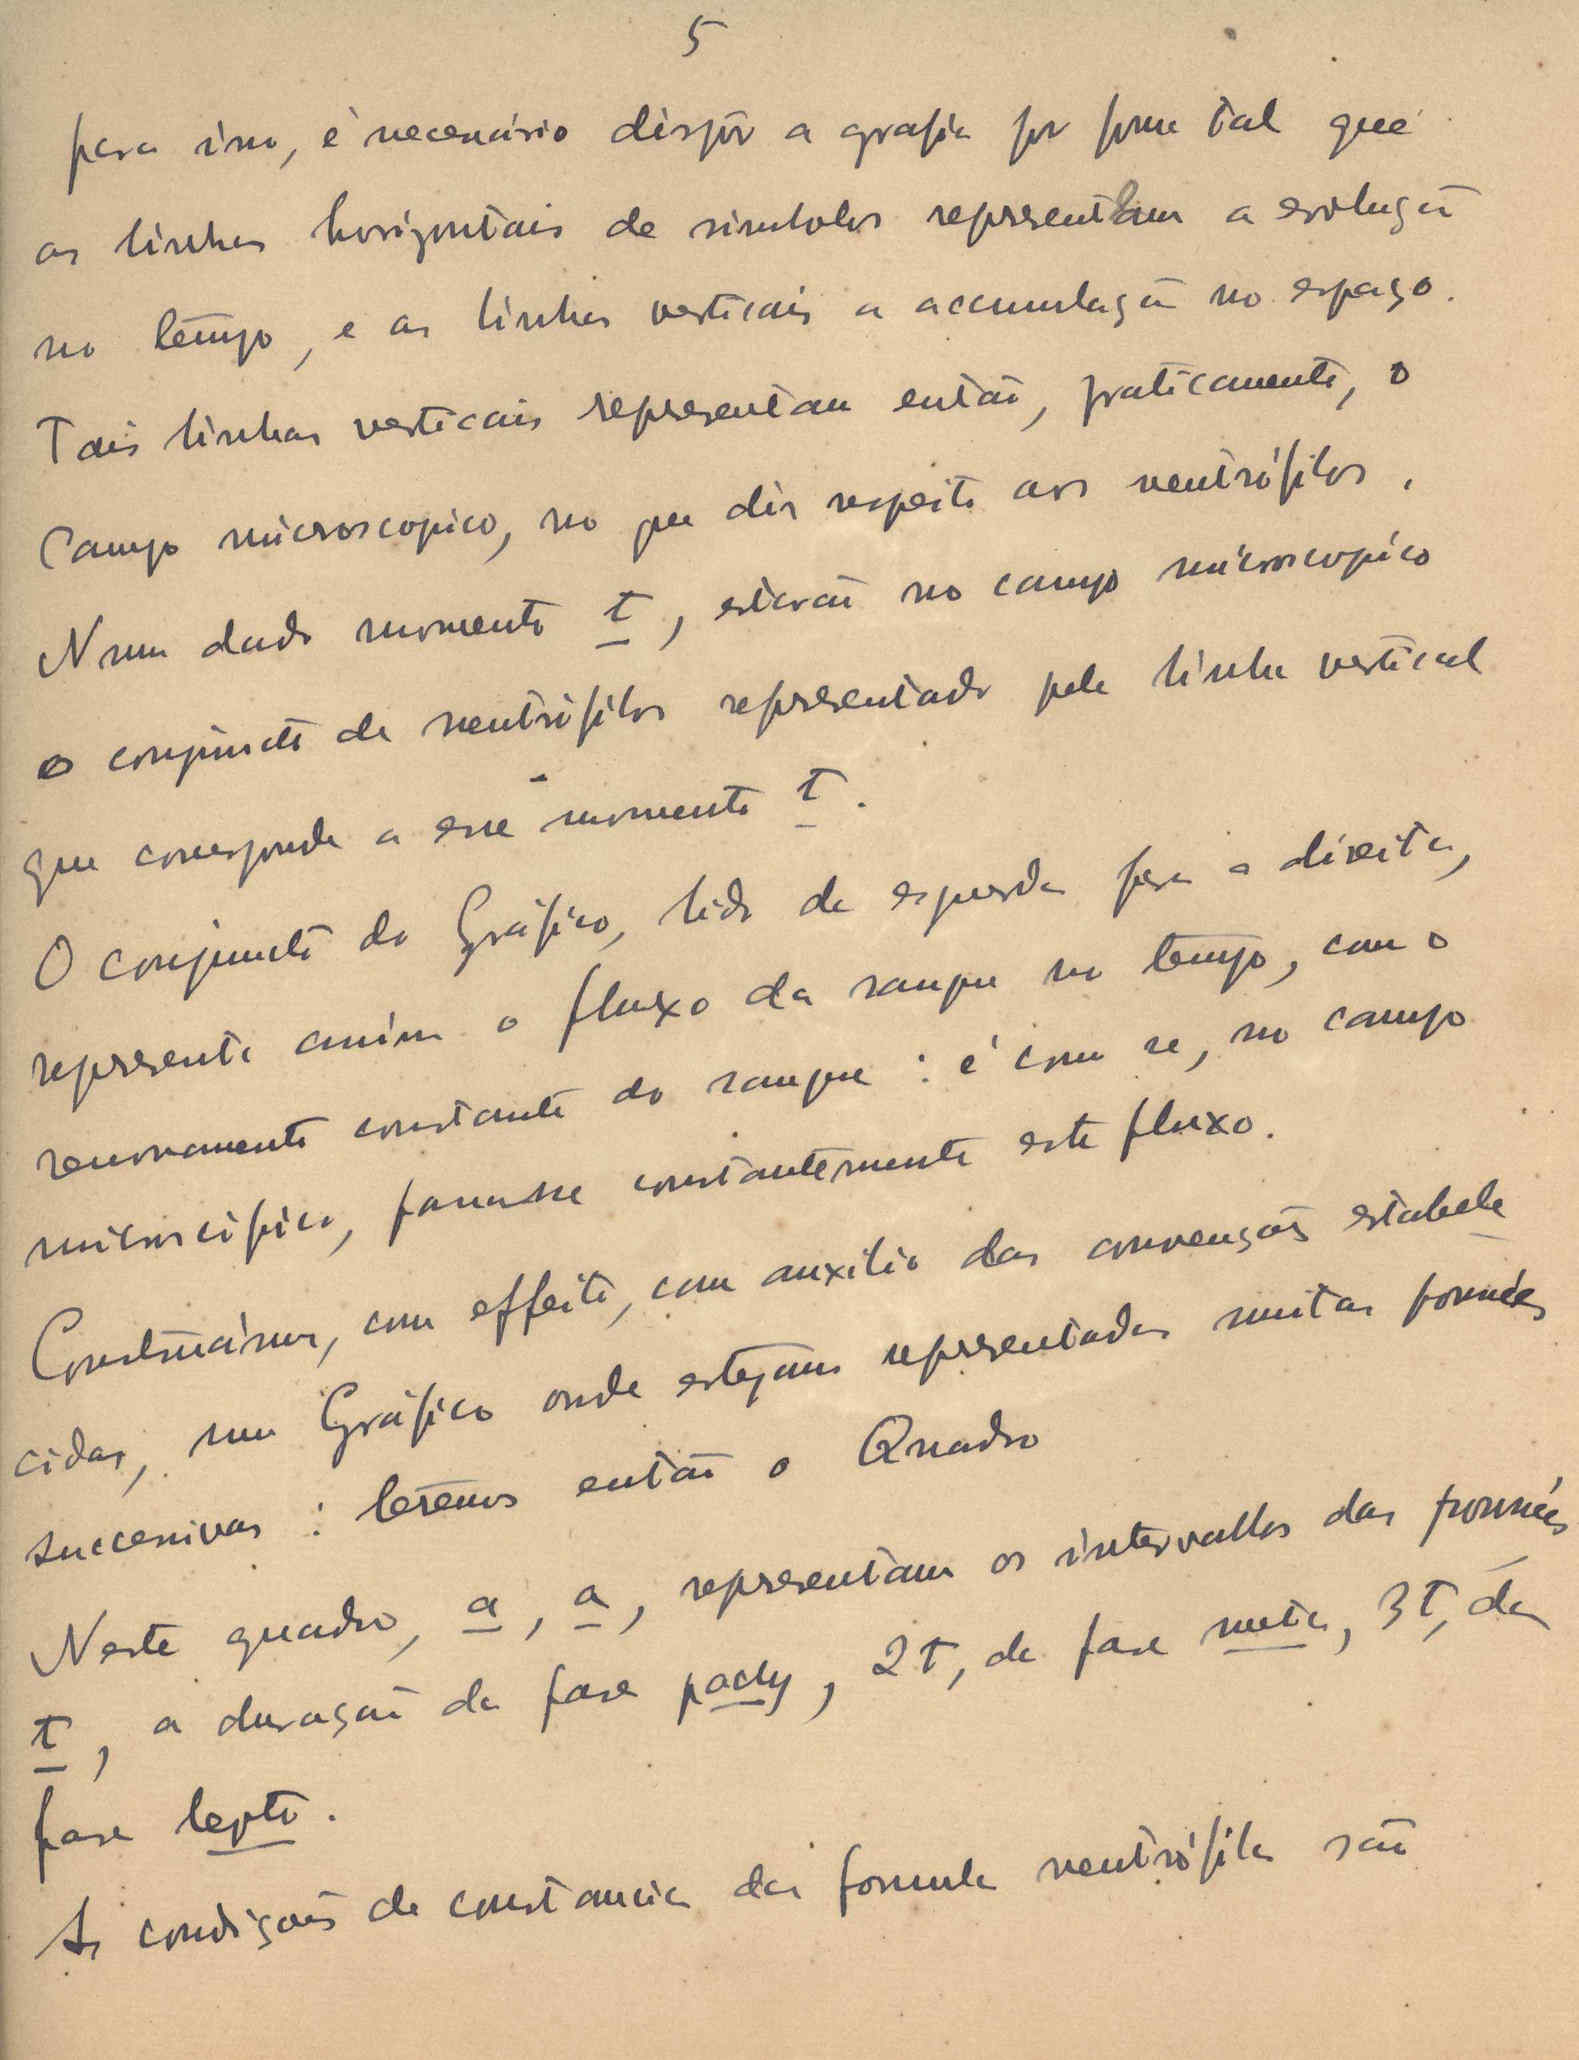 5
para isso, é necessário dispôr a grafia por forma tal que
as linhas horizontais de simbolos representam a evolução
no tempo, e as linhas verticais a accumulação no espaço.
Tais linhas verticais representam então, praticamente, o
Campo microscopico, no que diz respeito aos neutrófilos.
Num dado momento t, estarão no campo microscopico
o conjuncto de neutrófilos representado pela linha vertical
que corresponde a esse momento t.
O conjuncto do Gráfico, lido da esquerda para a direita,
representa assim o fluxo da sangue no tempo, com o
renovamento constante do sangue: é como se, no campo
microscópico, passasse constantemente este fluxo.
Construámos, com effeito, com auxilio das convenções estabele
cidas, um Gráfico onde estejam representadas muitas fornées
successivas: teremos então o Quadro
Neste quadro, a, a, representam os intervallos das fornées
t, a duração da fase pachy, 2t, da fase meta, 3t, da
fase lepto.
As condições de constancia da formula neutrófila são